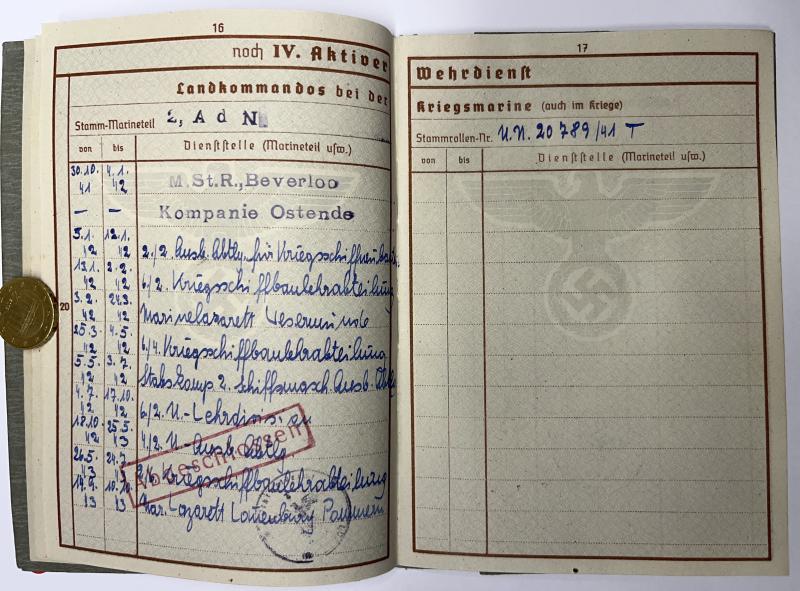 16
noch IV. Aktiver
Landkommandos bei der
Stamm-Marineteil 2, A d N
von bis Dienststelle (Marineteil usw.)
30.10. 4.1.
41 42
M.St.R., Beverloo
— — Kompanie Ostende
5.1. 12.1.
42 42
2./2. Ausb. Abtlg. für
13.1. 2.2.
42 42
6/2. Kriegsschiffbaulehrabteilung
3.2. 24.3.
42 42
Marinelazarett Wesermünde
25.3. 4.5.
42 42
6/4. Kriegsschiffbaulehrabteilung
5.5. 3.7.
42 42
Stabskomp. 2. Schiffsmasch. Ausb. Abtlg.
4.7. 17.10.
42 42
6/2. U.-Lehrdivision
18.10. 25.5.
42 43
4/2. U-Ausb. Abtlg.
26.5. 24.7.
43 43
Kriegsschiffbaulehrabteilung
14.9. 10.10.
43 43
Mar. Lazarett Lauenburg Pommern
20
Abgeschlossen
17
Wehrdienst
Kriegsmarine (auch im Kriege)
Stammrollen-Nr. U.N. 20 789/41 T
von bis Dienststelle (Marineteil usw.)